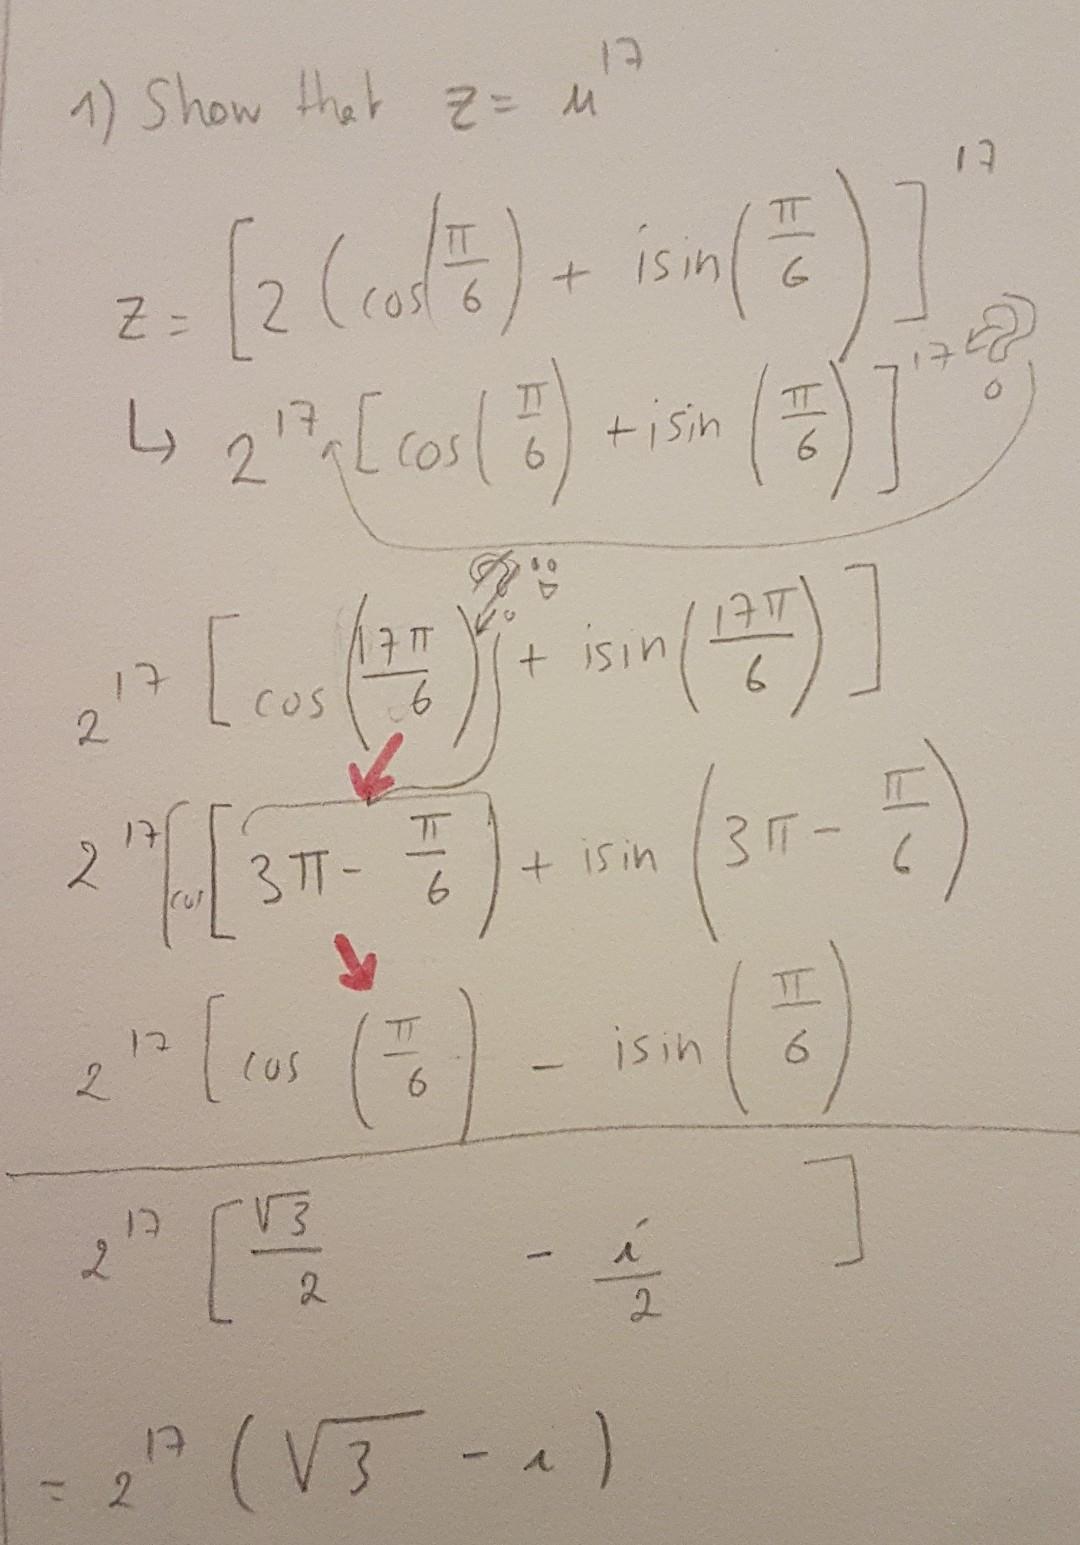 1) Show that z = u^17
z = [2 (cos(π/6) + isin(π/6)]^17
↳ 2^17 [cos(π/6) + isin(π/6)]^17
2^17 [cos(17π/6) + isin(17π/6)]
2^17 [cos [3π - π/6) + isin (3π - π/6)
2^17 [cos (π/6) - isin (π/6)
2^17 [√3/2 - i/2]
= 2^17 (√3 - i)